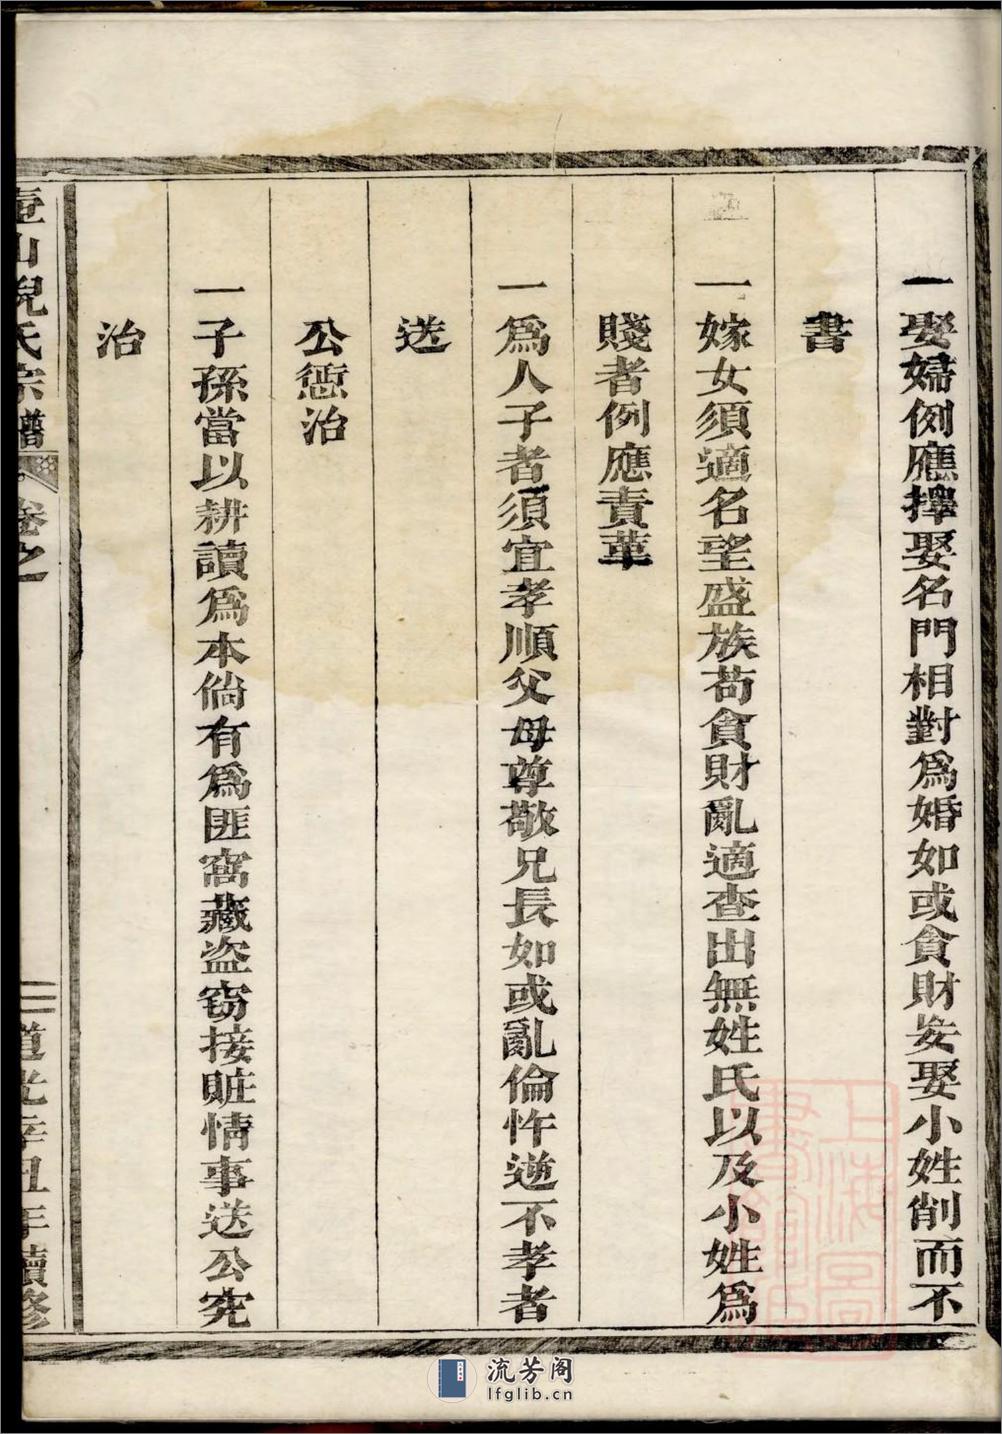 一娶婦例應擇娶名門相對爲婚如或貪財妄娶小姓削而不
書
一嫁女須適名望盛族苟貪財亂適查出無姓氏以及小姓爲
賤者例應責革
一爲人子者須宜孝順父母尊敬兄長如或亂倫忤逆不孝者
送
公懲治
一子孫當以耕讀爲本倘有爲匪窩藏盜窃接賍情事送公究
治
壺山倪氏宗譜 卷之一
二 道光辛丑年續修
上海圖書館藏
流芳阁
lfglib.cn